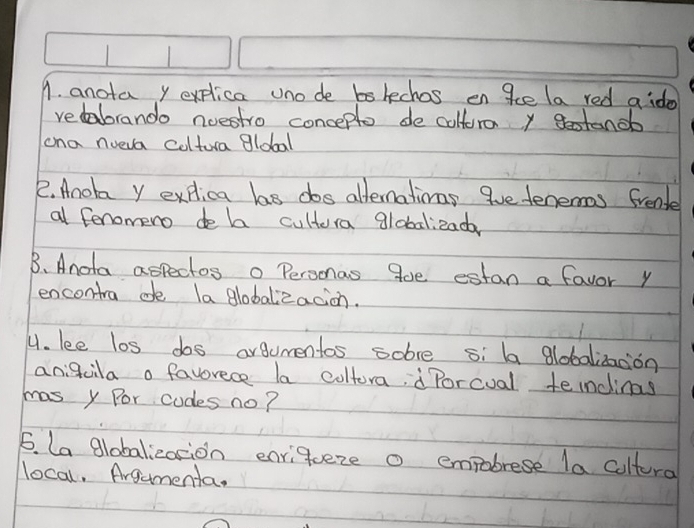 1. anota y explica uno de los hechos en que la red a ido
redelaborando nuestro concepto de cultura y gestando
una nueva cultura global
2. Anota y explica las dos alternativas que tenemos frente
al fenomeno de la cultura globalizada
3. Anota aspectos o Personas que estan a favor y
encontra de la globalización.
4. lee los dos argumentos sobre si la globalización
aniquila o favorece la cultura. ¿Por cual te inclinas
mas y Por cuales no?
5. La globalización enriqueze o empobrese la cultura
local. Argumenta.